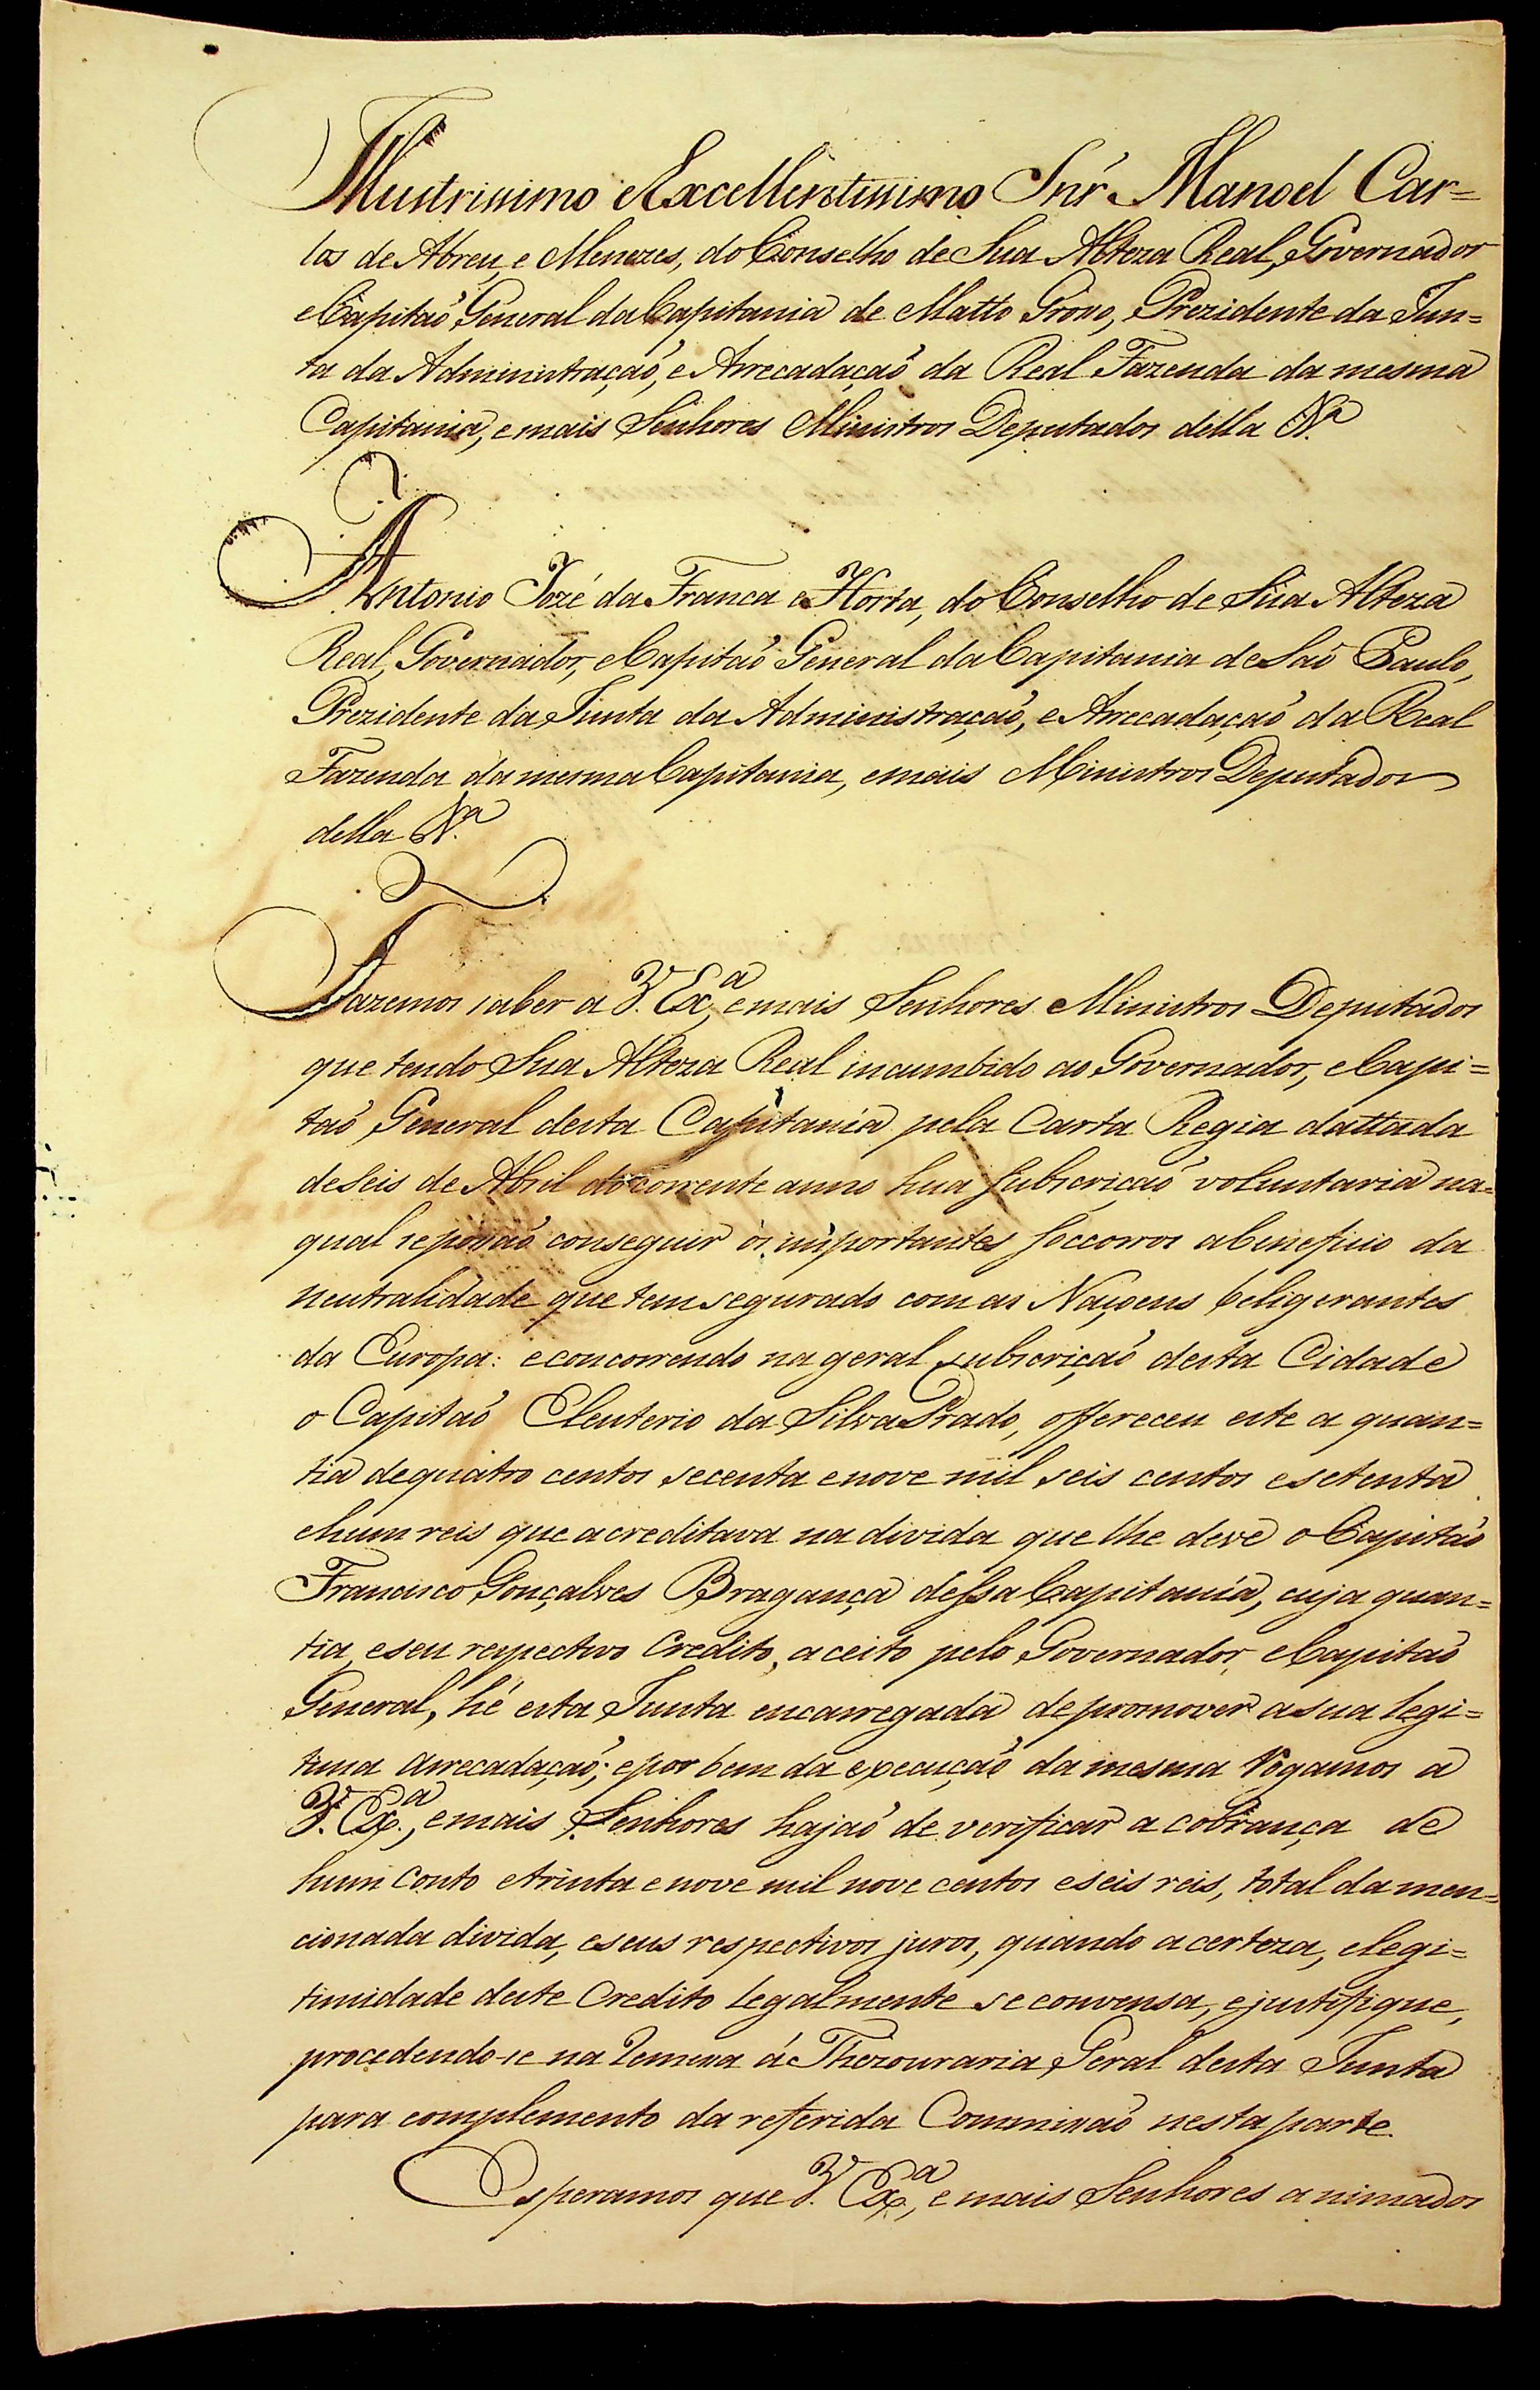 Illustrissimo e Excellentissimo Snr̃ Manoel Car=
los de Abreu, e Menezes, do Conselho de Sua Alteza Real, Governador
e Capitaõ General da Capitania de Matto Grosso, Prezidente da Jun=
ta da Administraçaõ, e Arrecadaçaõ da Real Fazenda da mesma
Capitania, e mais Senhores Ministros Deputados della N.ª
Antonio Jozé da Franca e Horta, do Conselho de Sua Alteza
Real, Governador, e Capitaõ General da Capitania de Saõ Paulo,
Prezidente da Junta da Administraçaõ, e Arrecadaçaõ da Real
Fazenda da mesma Capitania, e mais Ministros Deputados
della N.ª
Fazemos saber a V. Ex.ª, e mais Senhores Ministros Deputados
que tendo Sua Alteza Real incumbido ao Governador, e Capi=
taõ General desta Capitania pela Carta Regia dattada
de seis de Abril do corrente anno hua subscriçaõ voluntaria na=
qual se possaõ conseguir os importantes soccorros a beneficio da
neutralidade que tem segurado com as Naçoens beligerantes
da Europa: e concorrendo na geral subscriçaõ desta Cidade
o Capitaõ Eleuterio da Silva Prado, offereceu este a quan=
tia de quatro centos secenta e nove mil seis centos e setenta
e hum reis que acreditava na divida que lhe deve o Capitaõ
Francisco Gonçalves Bragança dessa Capitania, cuja quan=
tia, e seu respectivo Credito, aceito pelo Governador, e Capitaõ
General, hé esta Junta encarregada de promover a sua legi=
tima arrecadaçaõ; e por bem da execuçaõ da mesma Rogamos a
V. Ex.ª, e mais Senhores hajaõ de verificar a cobrança de
hum conto e trinta e nove mil nove centos e seis reis, total da men=
cionada divida, e seus respectivos juros, quando a certeza, e legi=
timidade deste Credito legalmente se convensa, e justifique,
procedendo-se na Remessa á Thezouraria Geral desta Junta
para complemento da referida Commissaõ nesta parte.
Esperamos que V. Ex.ª, e mais Senhores animados